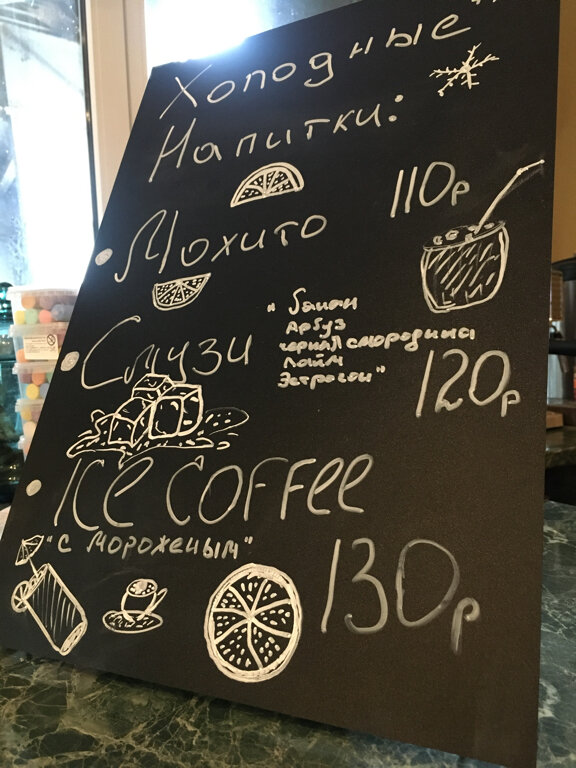 Холодные
Напитки:
• Мохито 110р
• Слузи
"Банан
Арбуз
черная смородина
Лайм
Эстрогон"
120р
• ICE COFFEE
"С мороженым"
130р